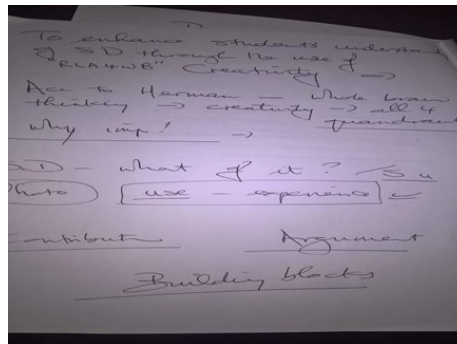 To enhance students understan
of SD through the use of
"RLA4WB" Creativity →
Acc to Herman – whole brain
thinking → creativity → all 4
quandrant
Why imp! →
SD – what of it?
Photo use – experience
Contribution Argument
Building blocks